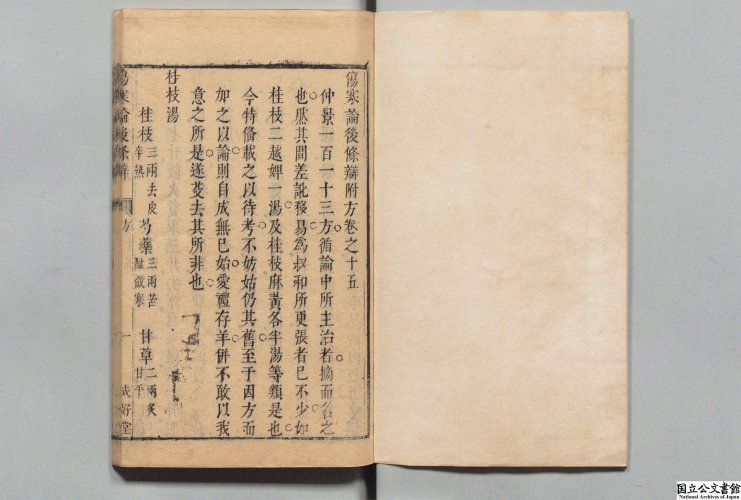 傷寒論後條辯附方卷之十五
仲景一百一十三方循論中所主治者摘而名之
也然其間差訛移易為叔和所更張者已不少如
桂枝二越婢一湯及桂枝麻黃各半湯等類是也
今特俻載之以待考不妨姑仍其舊至于因方而
加之以論則自成無已始愛禮存羊併不敢以我
意之所是遂芟去其所非也
桂枝湯
桂枝三兩去皮辛熱 芍藥三兩苦酸微寒 甘草二兩炙甘平
傷寒論後條辯 方 一 式好堂
国立公文書館
National Archives of Japan